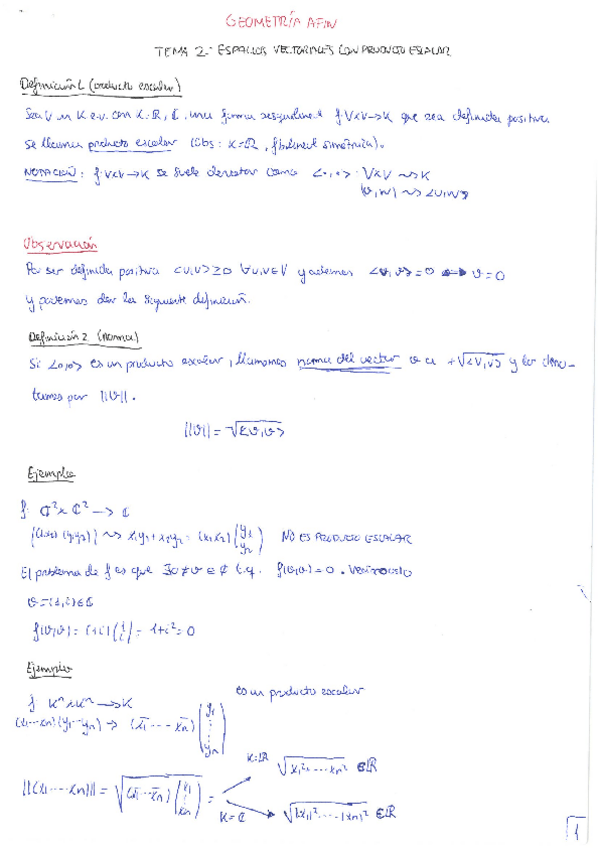 GEOMETRÍA AFIN
TEMA 2.- ESPACIOS VECTORIALES CON PRODUCTO ESCALAR
Definición 1 (producto escalar)
Sea V un K e.v. con K=ℝ, ℂ, una forma sesquilineal f: V×V→K que sea definida positiva
se llama producto escalar (Obs: K=ℝ, f bilineal simétrica).
NOTACIÓN: f: V×V→K se suele denotar como <·,·>: V×V ⇝ K
(v,w) ⇝ <v,w>
Observación
Por ser definida positiva <v,v> ≥ 0 ∀v,v∈V y además <v,v> = 0 ⟺ v=0
y podemos dar la siguiente definición.
Definición 2 (norma)
Si <·,·> es un producto escalar, llamamos norma del vector v a +√<v,v> y lo deno-
tamos por ||v||.
||v|| = √<v,v>
Ejemplo
f: ℂ²×ℂ² → ℂ
((x₁x₂)(y₁y₂)) ⇝ x₁y₁+x₂y₂ = (x₁x₂)(y₁ y₂) NO ES PRODUCTO ESCALAR
El problema de f es que ∃0≠v∈ℂ t.q. f(v,v)=0. Veámoslo
v=(1,i)∈ℂ
f(v,v) = (1 i)(1 i) = 1+i² = 0
Ejemplo
f: Kⁿ×Kⁿ → K es un producto escalar
(x₁...xₙ)(y₁...yₙ) → (x̄₁...x̄ₙ)(y₁ ⋮ yₙ)
K=ℝ √x₁²+...+xₙ² ∈ℝ
||(x₁...xₙ)|| = √(x̄₁...x̄ₙ)(x₁ ⋮ xₙ) =
K=ℂ √|x₁|²+...+|xₙ|² ∈ℝ
1